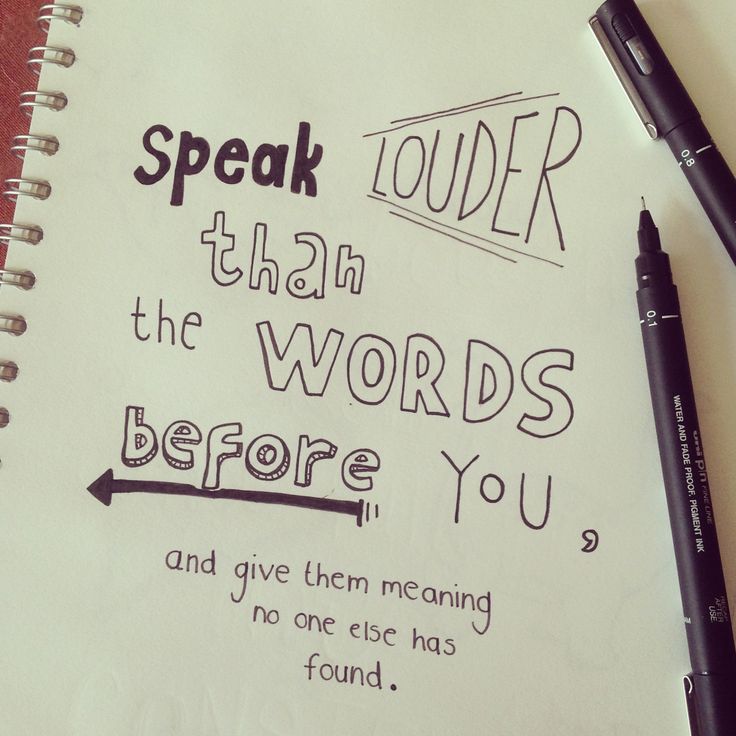 speak LOUDER
than
the WORDS
before YOU,
and give them meaning
no one else has
found.
0.8
0.1
uni pin FINE LINE
WATER AND FADE PROOF, PIGMENT INK
AFTER
USE.